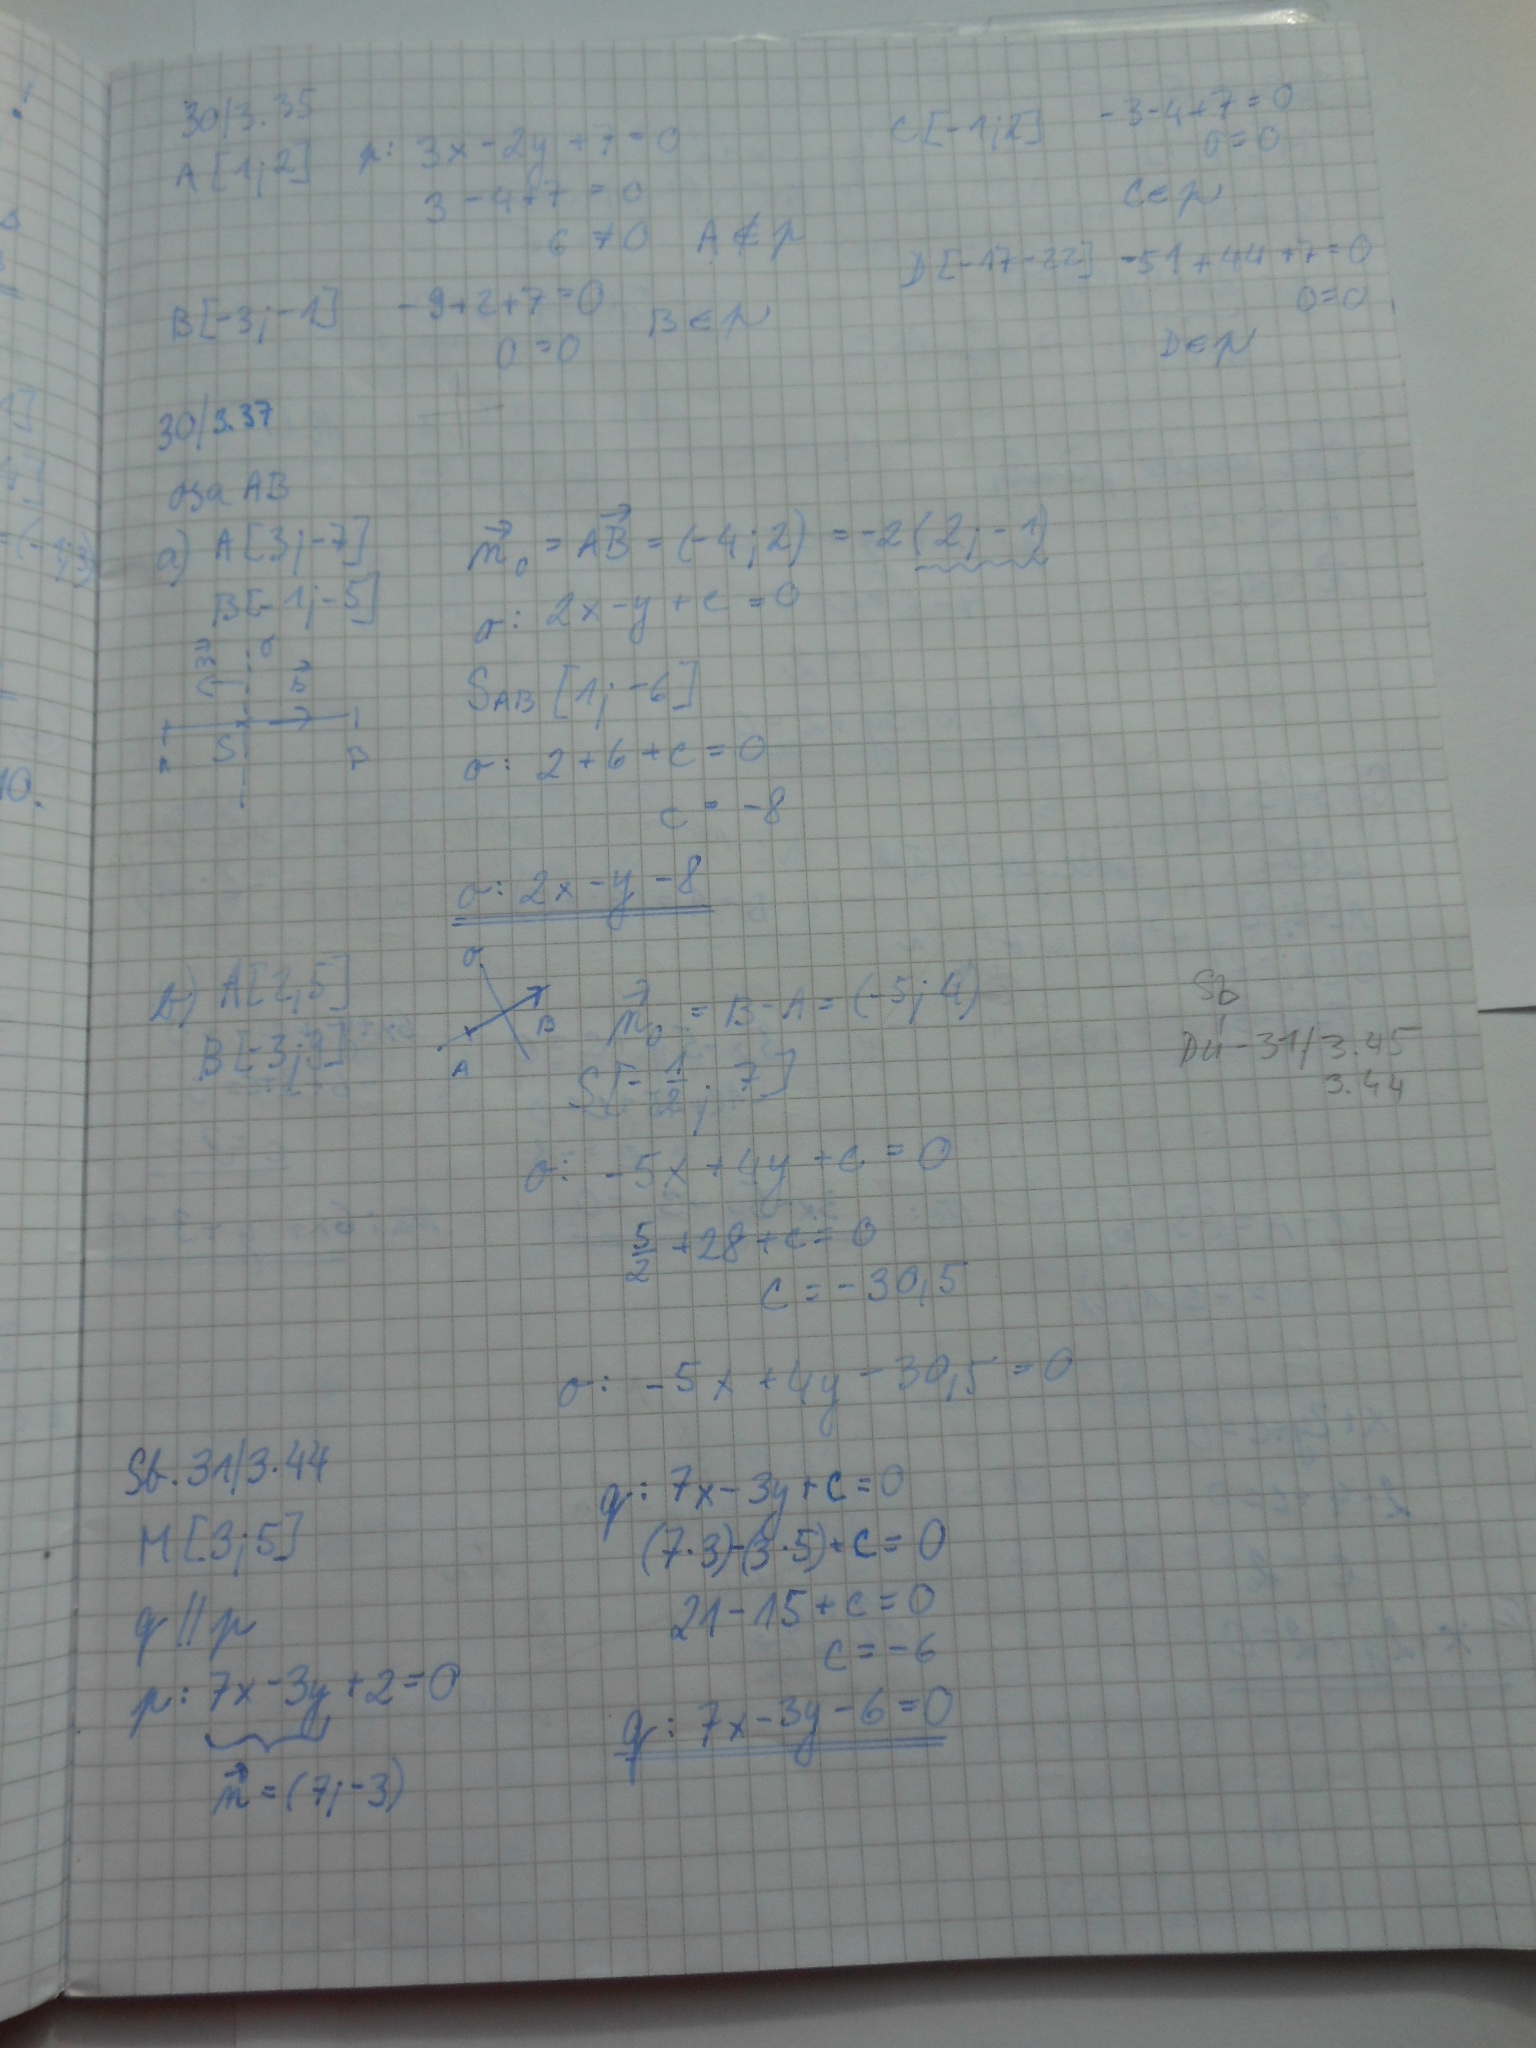 30/3.35
A[1;2] p: 3x-2y+7=0
3-4+7 = 0
6 ≠ 0 A ∉ p
B[-3;-1] -9+2+7=0 B ∈ p
0=0
C[-1;2] -3-4+7=0
0=0
C∈p
D[-17-22] -51+44+7=0
0=0
D∈p
30/3.37
osa AB
a) A[3;-7]
B[-1;-5]
o
S
B
n⃗₀ = AB⃗ = (-4;2) = -2(2;-1)
o: 2x-y+c=0
S_AB [1;-6]
o: 2+6+c=0
c = -8
o: 2x-y-8
b) A[2,5]
B[-3;9]
o
A
B
n⃗₀ = B-A = (-5;4)
S[-1/2; 7]
o: -5x+4y+c=0
5/2+28+c=0
c=-30,5
o: -5x+4y-30,5=0
Sb
DÚ-31/3.45
3.44
Sb. 31/3.44
M[3;5]
q||p
p: 7x-3y+2=0
n⃗=(7;-3)
q: 7x-3y+c=0
(7·3)-(3·5)+c=0
21-15+c=0
c=-6
q: 7x-3y-6=0